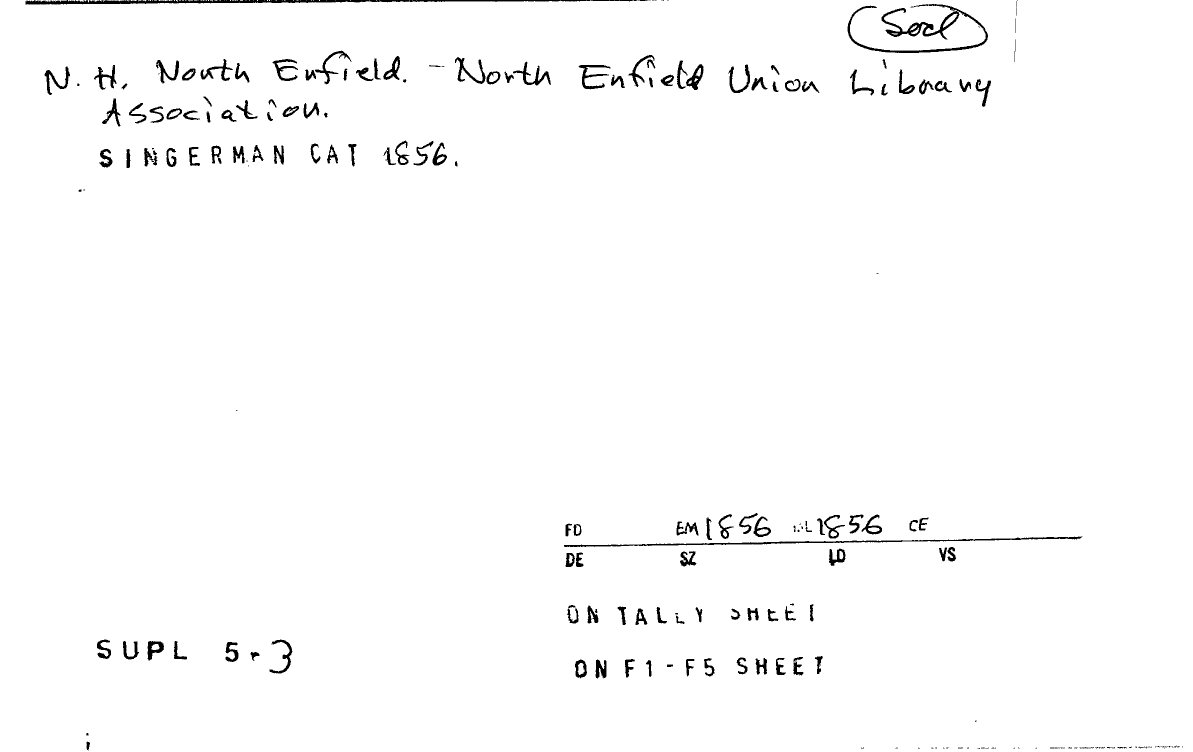 Socl
N. H. North Enfield. - North Enfield Union Library
Association.
SINGERMAN CAT 1856.
FD EM 1856 ML 1856 CE
DE SZ LD VS
ON TALLY SHEET
SUPL 5-3
ON F1-F5 SHEET